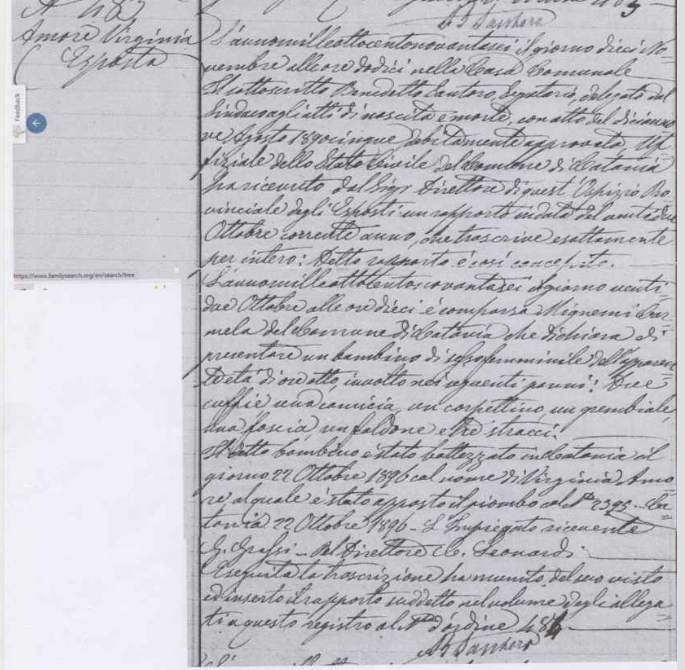 N 483
Amore Virginia
Esposta
Feedback
https://www.familysearch.org/en/search/tree
L'annomilleottocentonovantasei il giorno dieci No-
vembre alle ore dodici nella Casa Comunale
Il sottoscritto Benedetto Segretario, delegato dal
Sindaco agli atti di nascita e morte, con atto del diciano
ve Agosto 1890cinque debitamente approvato, Uf
fiziale dello Stato Civile del Comune di Catania
ha ricevuto dal Sigr Direttore di quest'Ospizio Pro
vinciale degli Esposti un rapporto in data del ventidue
Ottobre corrente anno, che trascrive esattamente
per intero: Detto rapporto è così concepito.
L'annomilleottocentonovantasei il giorno venti
due Ottobre alle ore dieci è comparsa Mignemi Car
mela del Comune di Catania che dichiara di
presentare un bambino di sesso femminile dell'apparen
te età di ore otto, involto nei seguenti panni: Due
cuffie una camicia, un corpettino, un grembiale,
una fascia, un faldone e tre stracci.
Il detto bambino è stato battezzato in Catania il
giorno 22 Ottobre 1896 col nome di Virginia Amo
re al quale è stato apposto il piombo col No 2395 - Ca
tania 22 Ottobre 1896 - L'Impiegato ricevente
G. Grassi - Pel Direttore C. Leonardi.
Eseguita la trascrizione ha munito del suo visto
ed inserto il rapporto suddetto nel volume degli allega
ti a questo registro al No d'ordine 484